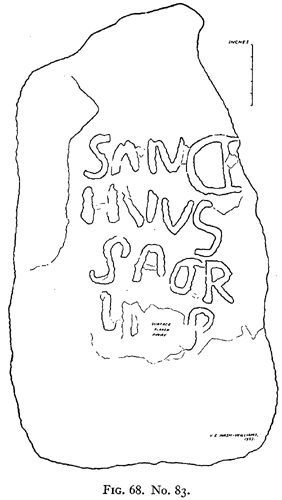 INCHES
SANCT
INVS
SACER
IN P
SURFACE
FLAKED
AWAY
V. E. NASH-WILLIAMS,
FIG. 68. No. 83.